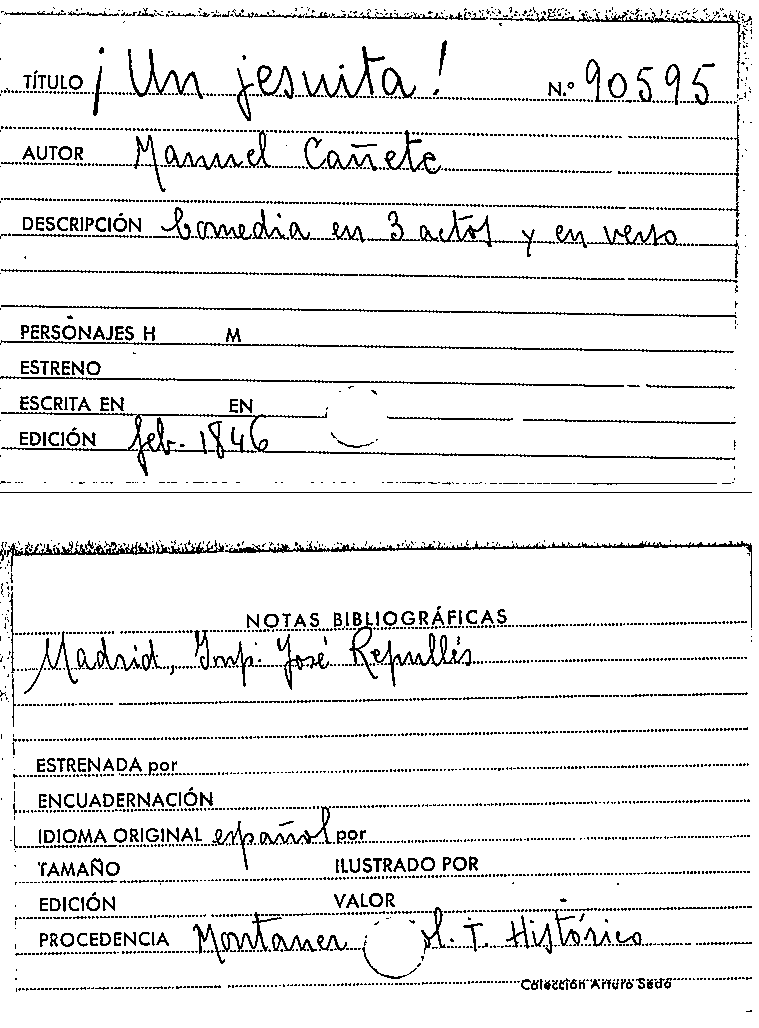 TÍTULO ¡Un jesuita! N.º 90595
AUTOR Manuel Cañete
DESCRIPCIÓN Comedia en 3 actos y en verso
PERSONAJES H M
ESTRENO
ESCRITA EN EN
EDICIÓN feb. 1846
NOTAS BIBLIOGRÁFICAS
Madrid, Imp. José Repullés
ESTRENADA por
ENCUADERNACIÓN
IDIOMA ORIGINAL español por
TAMAÑO ILUSTRADO POR
EDICIÓN VALOR
PROCEDENCIA Montaner T. Histórico
Colección Arturo Sedó